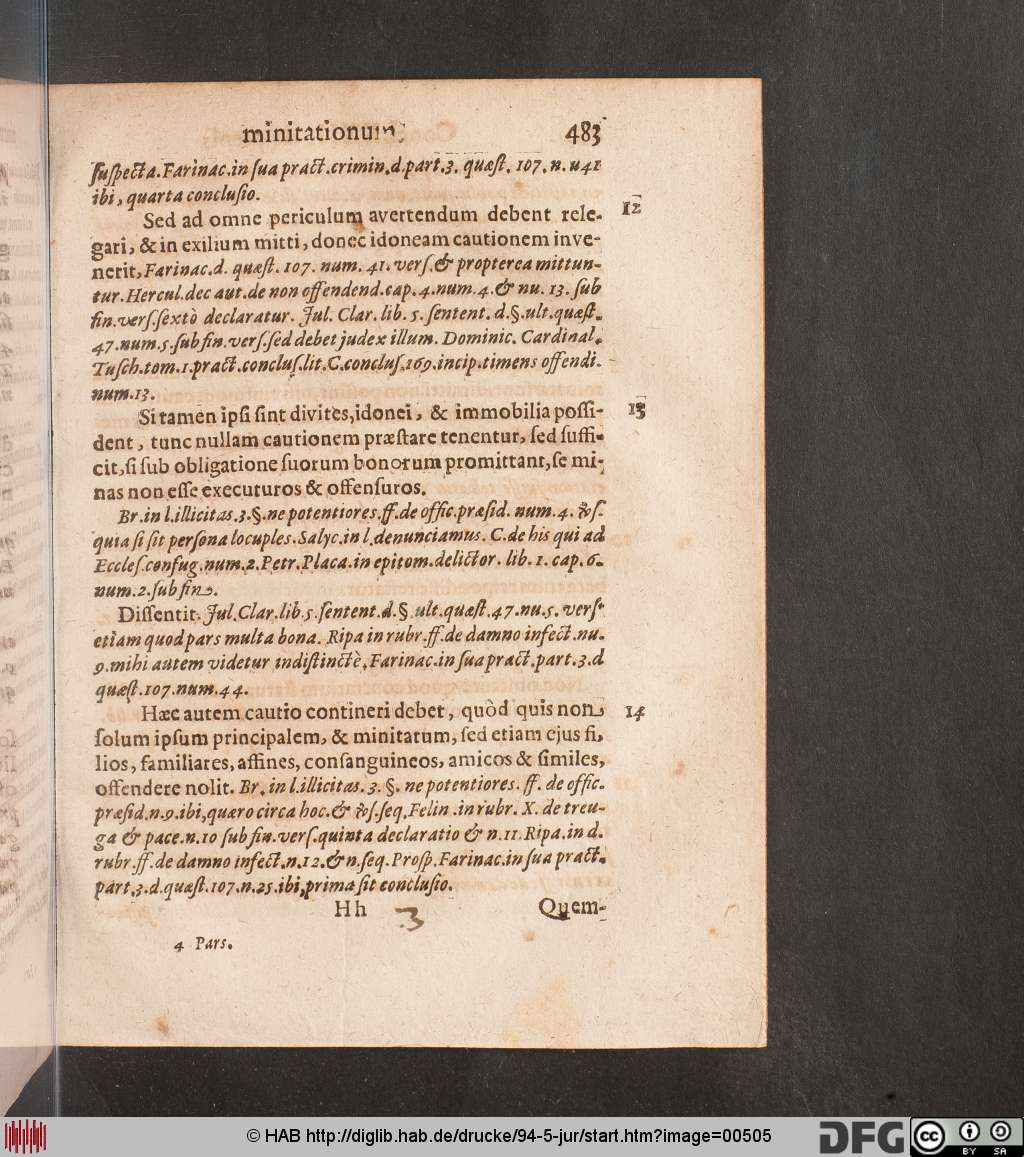 minitationum 483
ſuſpecta. Farinac. in ſua pract. crimin. d. part. 3. quæſt. 107. n. u41
ibi, quarta concluſio.
Sed ad omne periculum avertendum debent rele- 12
gari, & in exilium mitti, donec idoneam cautionem inve-
nerit, Farinac. d. quæſt. 107. num. 41. verſ. & propterea mittun-
tur. Hercul. dec aut. de non offendend. cap. 4. num. 4. & nu. 13. ſub
fin. verſ. ſextò declaratur. Jul. Clar. lib. 5. ſentent. d. §. ult. quæſt.
47. num. 5. ſub fin. verſ. ſed debet judex illum. Dominic. Cardinal.
Tuſch. tom. 1. pract. concluſ. lit. C. concluſ. 169. incip. timens offendi.
num. 13.
Si tamen ipſi ſint divites, idonei, & immobilia poſſi- 13
dent, tunc nullam cautionem præſtare tenentur, ſed ſuffi-
cit, ſi ſub obligatione ſuorum bonorum promittant, ſe mi-
nas non eſſe executuros & offenſuros.
Br. in l. illicitas. 3. §. ne potentiores. ff. de offic. præſid. num. 4. & ꝟſ.
quia ſi ſit perſona locuples. Salyc. in l. denunciamus. C. de his qui ad
Eccleſ. confug. num. 2. Petr. Placa. in epitom. delictor. lib. 1. cap. 6.
num. 2. ſub fin.
Diſſentit. Jul. Clar. lib. 5. ſentent. d. §. ult. quæſt. 47. nu. 5. verſ.
etiam quod pars multa bona. Ripa in rubr. ff. de damno infect. nu.
9. mihi autem videtur indiſtinctè, Farinac. in ſua pract. part. 3. d
quæſt. 107. num. 44.
Hæc autem cautio contineri debet, quòd quis non 14
ſolum ipſum principalem, & minitatum, ſed etiam ejus fi,
lios, familiares, affines, conſanguineos, amicos & ſimiles,
offendere nolit. Br. in l. illicitas. 3. §. ne potentiores. ff. de offic.
præſid. n. 9. ibi, quæro circa hoc. & ꝟſ. ſeq. Felin. in rubr. X. de treu-
ga & pace. n. 10 ſub fin. verſ. quinta declaratio & n. 11. Ripa. in d.
rubr. ff. de damno infect. n. 12. & n. ſeq. Proſp. Farinac. in ſua pract.
part. 3. d. quæſt. 107. n. 25. ibi, prima ſit concluſio.
Hh 3 Quem-
4 Pars.
© HAB http://diglib.hab.de/drucke/94-5-jur/start.htm?image=00505
DFG cc BY SA